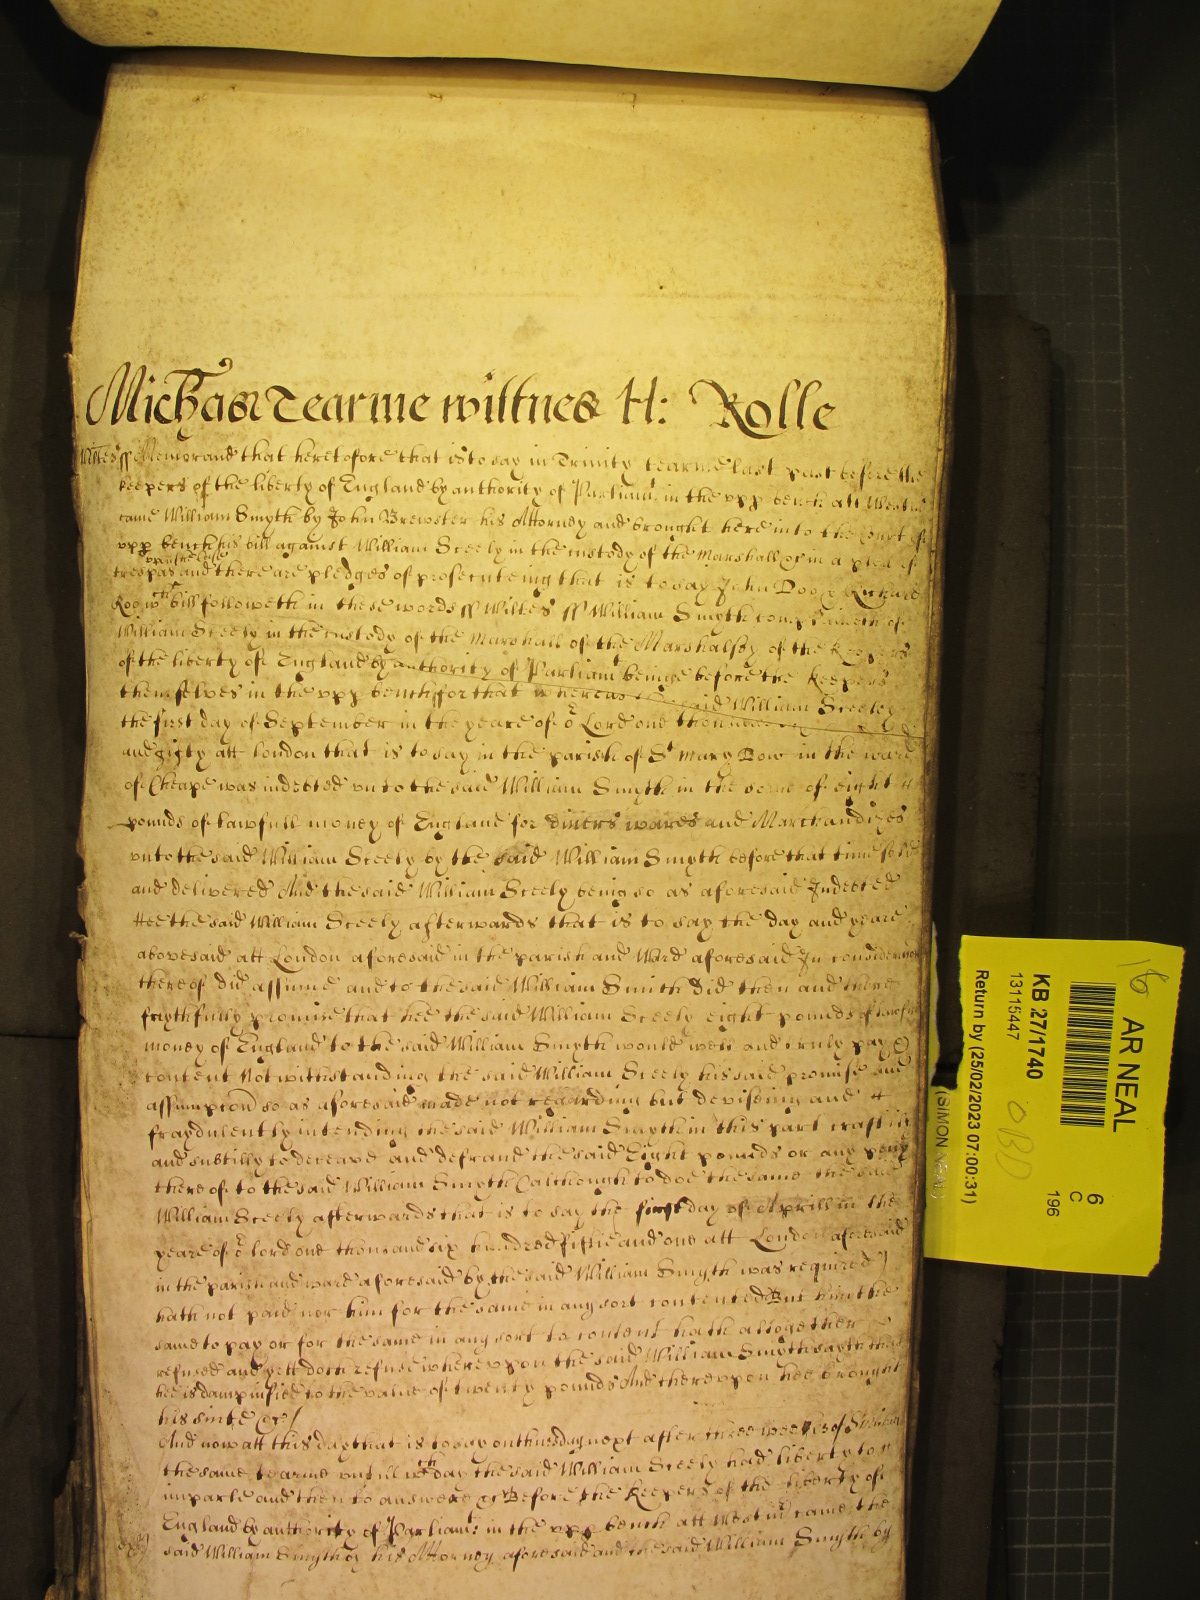 Michas Tearme wittnes H: Rolle
Wiltes ss Memorand that heretofore that is to say in Trinity tearme last past before the
keepers of the liberty of England by authority of Parliamt in the vpp bench att Westm
came William Smyth by John Brewster his Attorney and brought here into the Court of
vpp bench his bill against William Steely in the custody of the Marshall &c in a plea of
trespas vpon the case and there are pledges of prosecuteing that is to say John Doo & Richard
Roo wch bill followeth in these words ss Wiltes ss William Smyth complaineth of
William Steely in the custody of the Marshall of the Marshalsey of the Keepers
of the liberty of England by authority of Parliamt beinge before the Keepers
themselves in the vpp bench for that whereas the said William Steeley
the first day of September in the yeare of or Lord one thousand
and fifty att London that is to say in the parish of St Mary Bow in the ward
of Cheape was indebted vnto the said William Smyth in the some of eight
pounds of lawfull money of England for divers wares and Marchandizes
vnto the said William Steely by the said William Smyth before that time sold
and delivered And the said William Steely being so as aforesaid Indebted
Hee the said William Steely afterwards that is to say the day and yeare
abovesaid att London aforesaid in the parish and Ward aforesaid In consideracon
thereof did assume and to the said William Smith did then and there
faythfully promise that hee the said William Steely eight pounds of lawfull
money of England to the said William Smyth would well and truly pay &
content Notwithstanding the said William Steely his said promise and
assumpcon so as aforesaid made not regarding but deviseing and
fraydulently intending the said William Smyth in this part craftily
and subtilly to deceave and defraud the said Eight pounds or any peny
thereof to the said William Smyth (although to doe the same the said
William Steely afterwards that is to say the first day of Aprill in the
yeare of or lord one thousand six hundred fiftie and one att London aforesaid
in the parish and ward aforesaid by the said William Smyth was required)
hath not paid nor him for the same in any sort contented But him the
same to pay or for the same in any sort to content hath altogether
refused and yett doth refuse whereupon the said William Smyth sayth that
he is dampnified to the value of twenty pounds And thereupon hee brought
his suite &c/
And now att this day that is to say on thursday next after three weekes of St Michaell
the same tearme untill wch day the said William Steely had liberty to
imparle and then to answere &c Before the Keepers of the liberty of
England by authority of Parliamt in the vpp bench att Westmr came the
said William Smyth by his Attorney aforesaid and the said William Smyth by
16
AR NEAL
KB 27/1740
13115447
Return by (25/02/2023 07:00:31)
(SIMON NEAL)
6
C
196
OBD